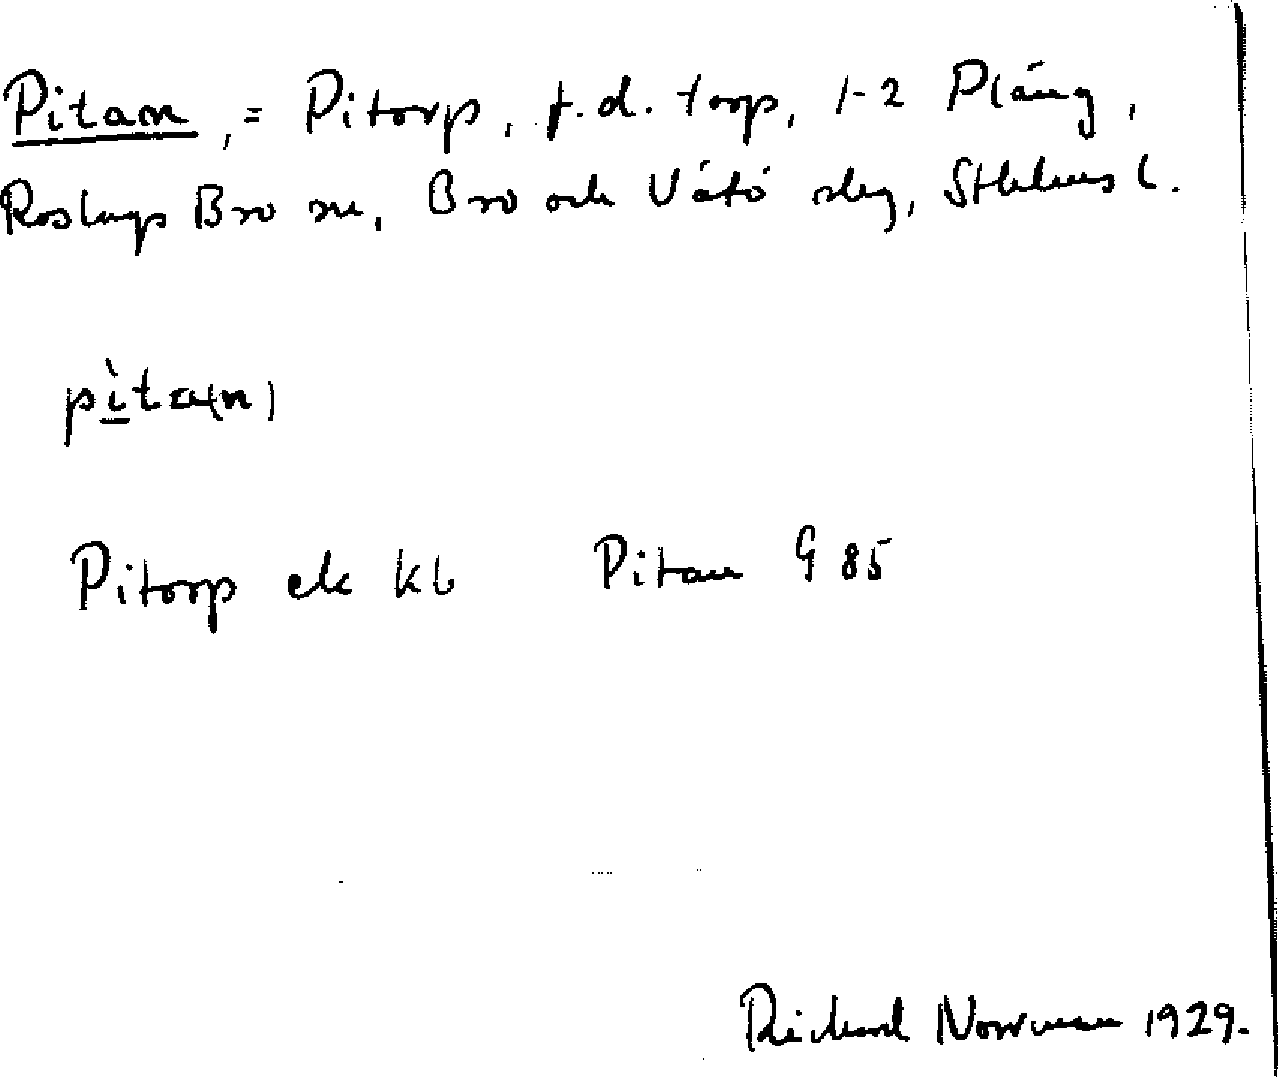 Pitan, = Pitorp, f.d. torp, 1-2 Pläng,
Roslags Bro sn, Bro och Vätö slg, Sthlms l.
pìta(n)
Pitorp ek kb Pitan G 85
Richard Norrman 1929.